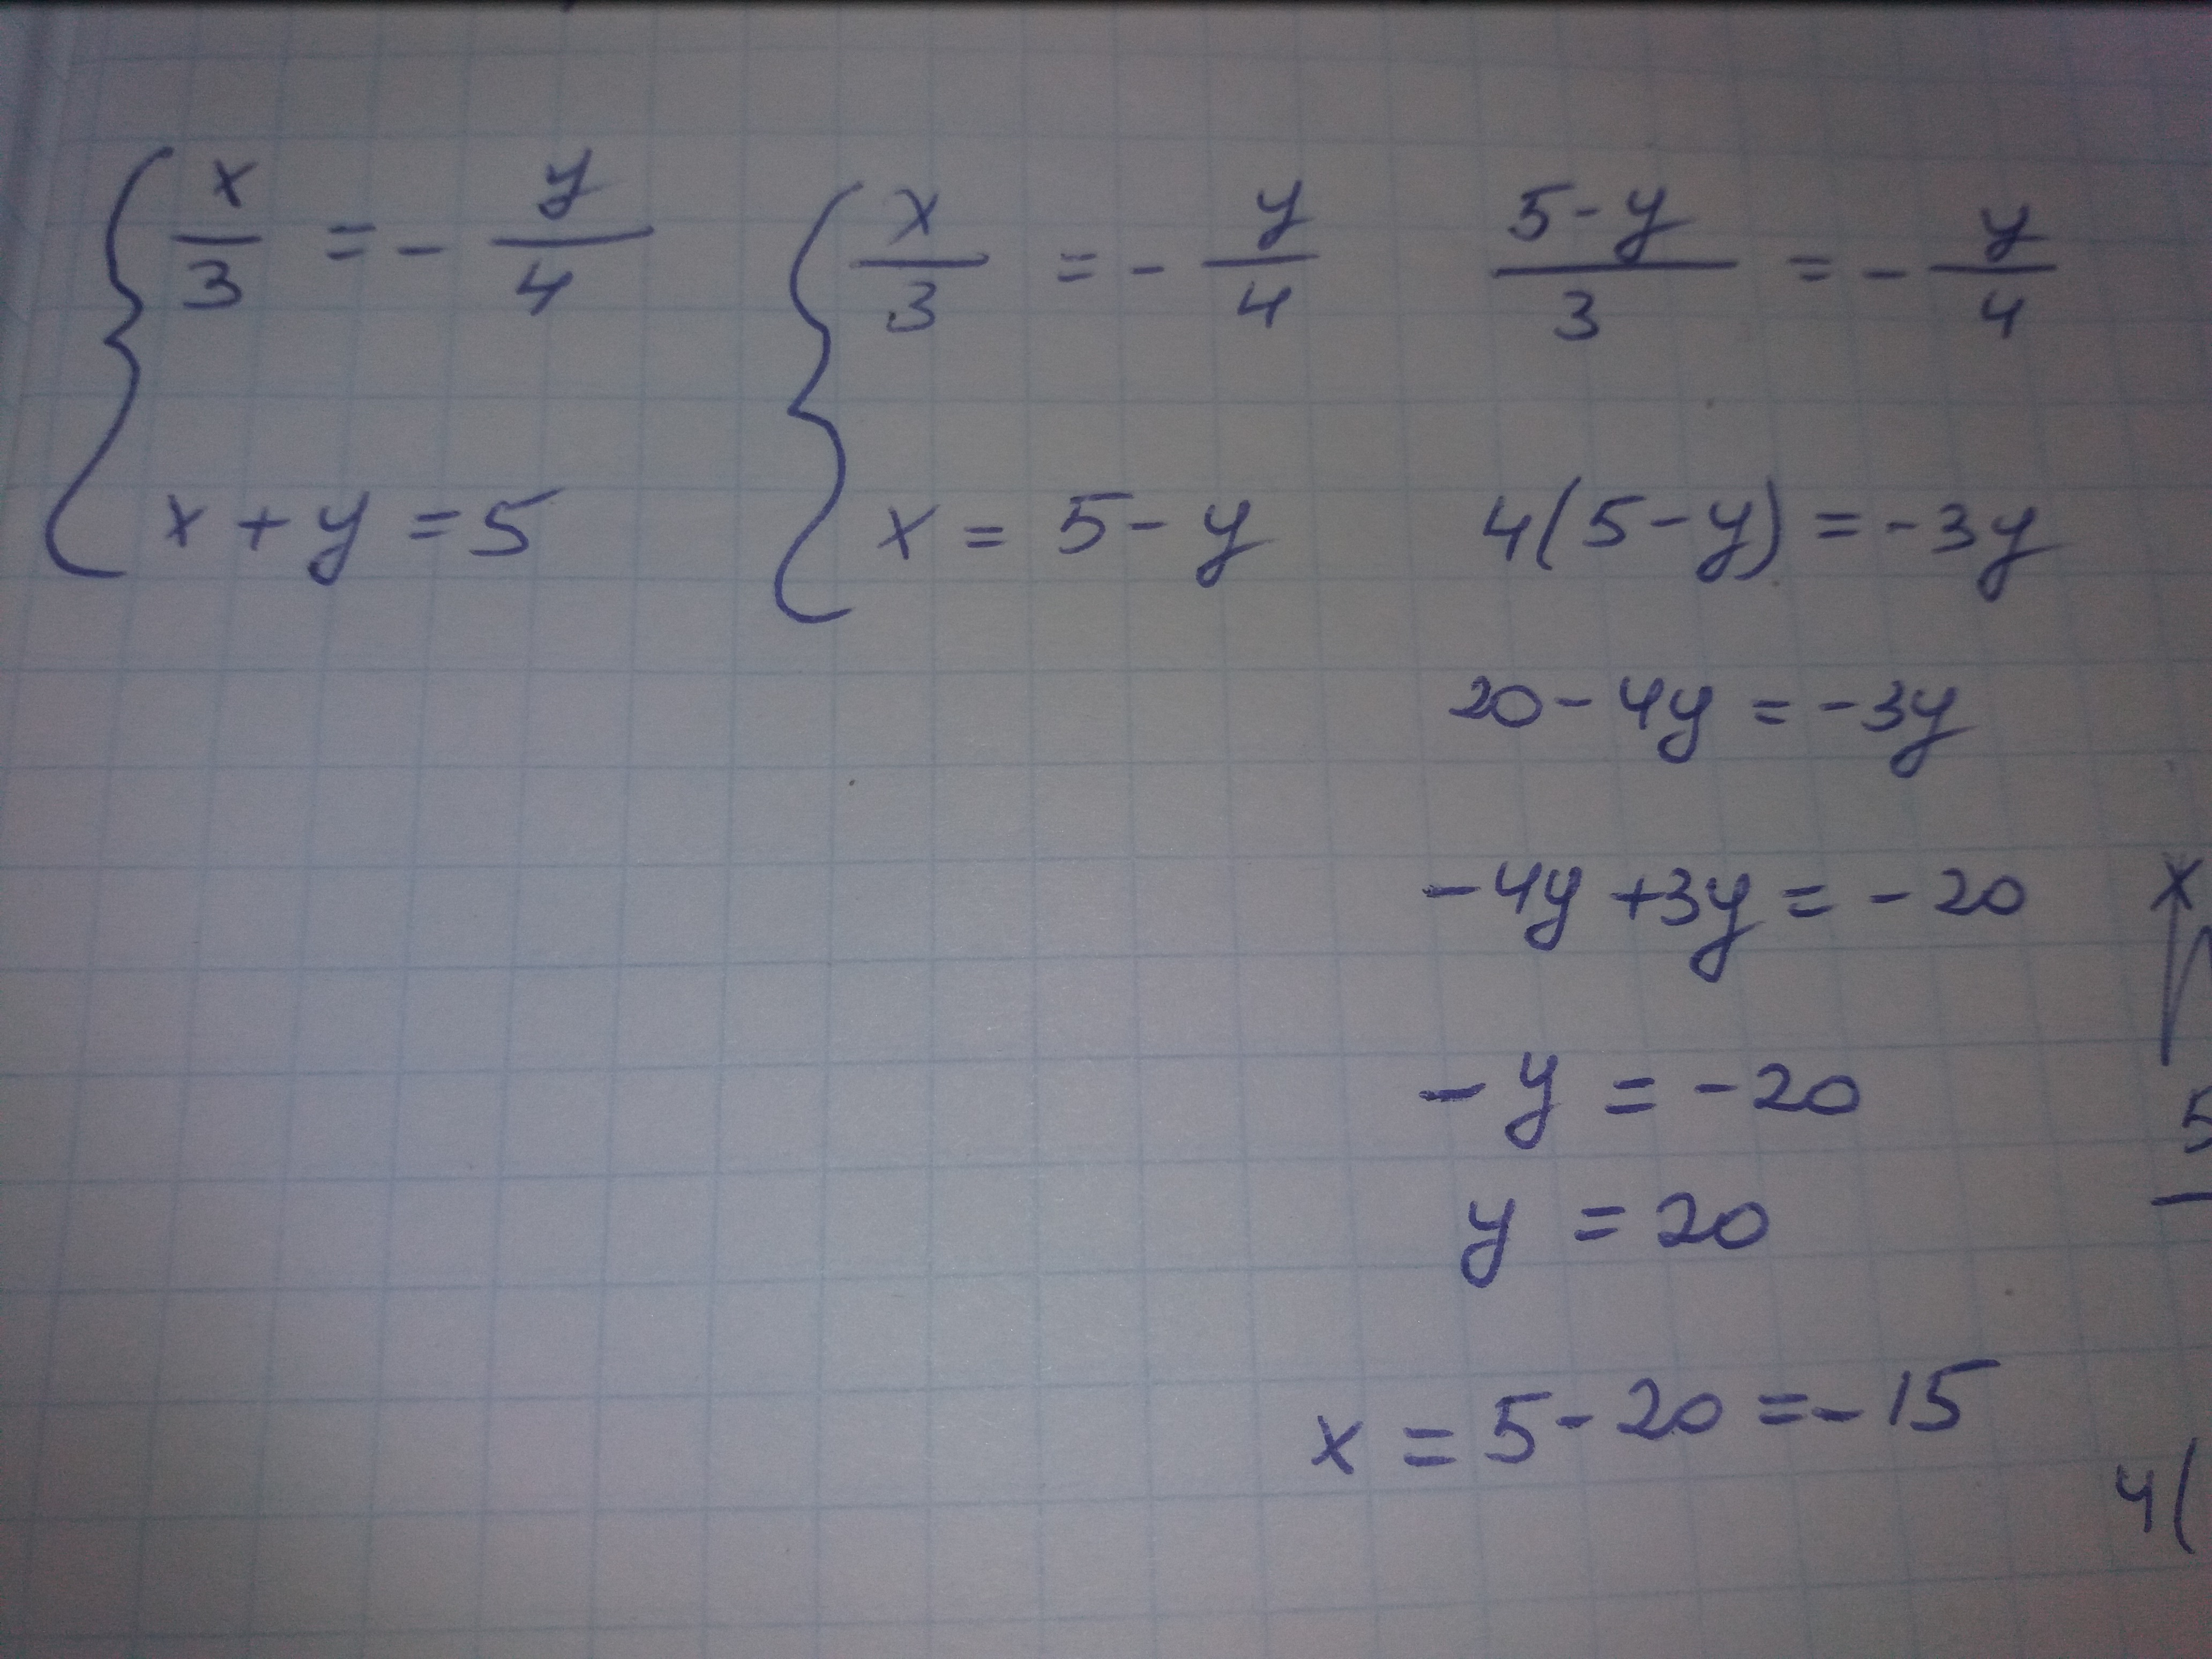 x/3 = - y/4
x + y = 5
x/3 = - y/4
x = 5 - y
5-y/3 = - y/4
4(5-y) = -3y
20 - 4y = -3y
-4y +3y = -20
-y = -20
y = 20
x = 5 - 20 = -15
x
5
4(